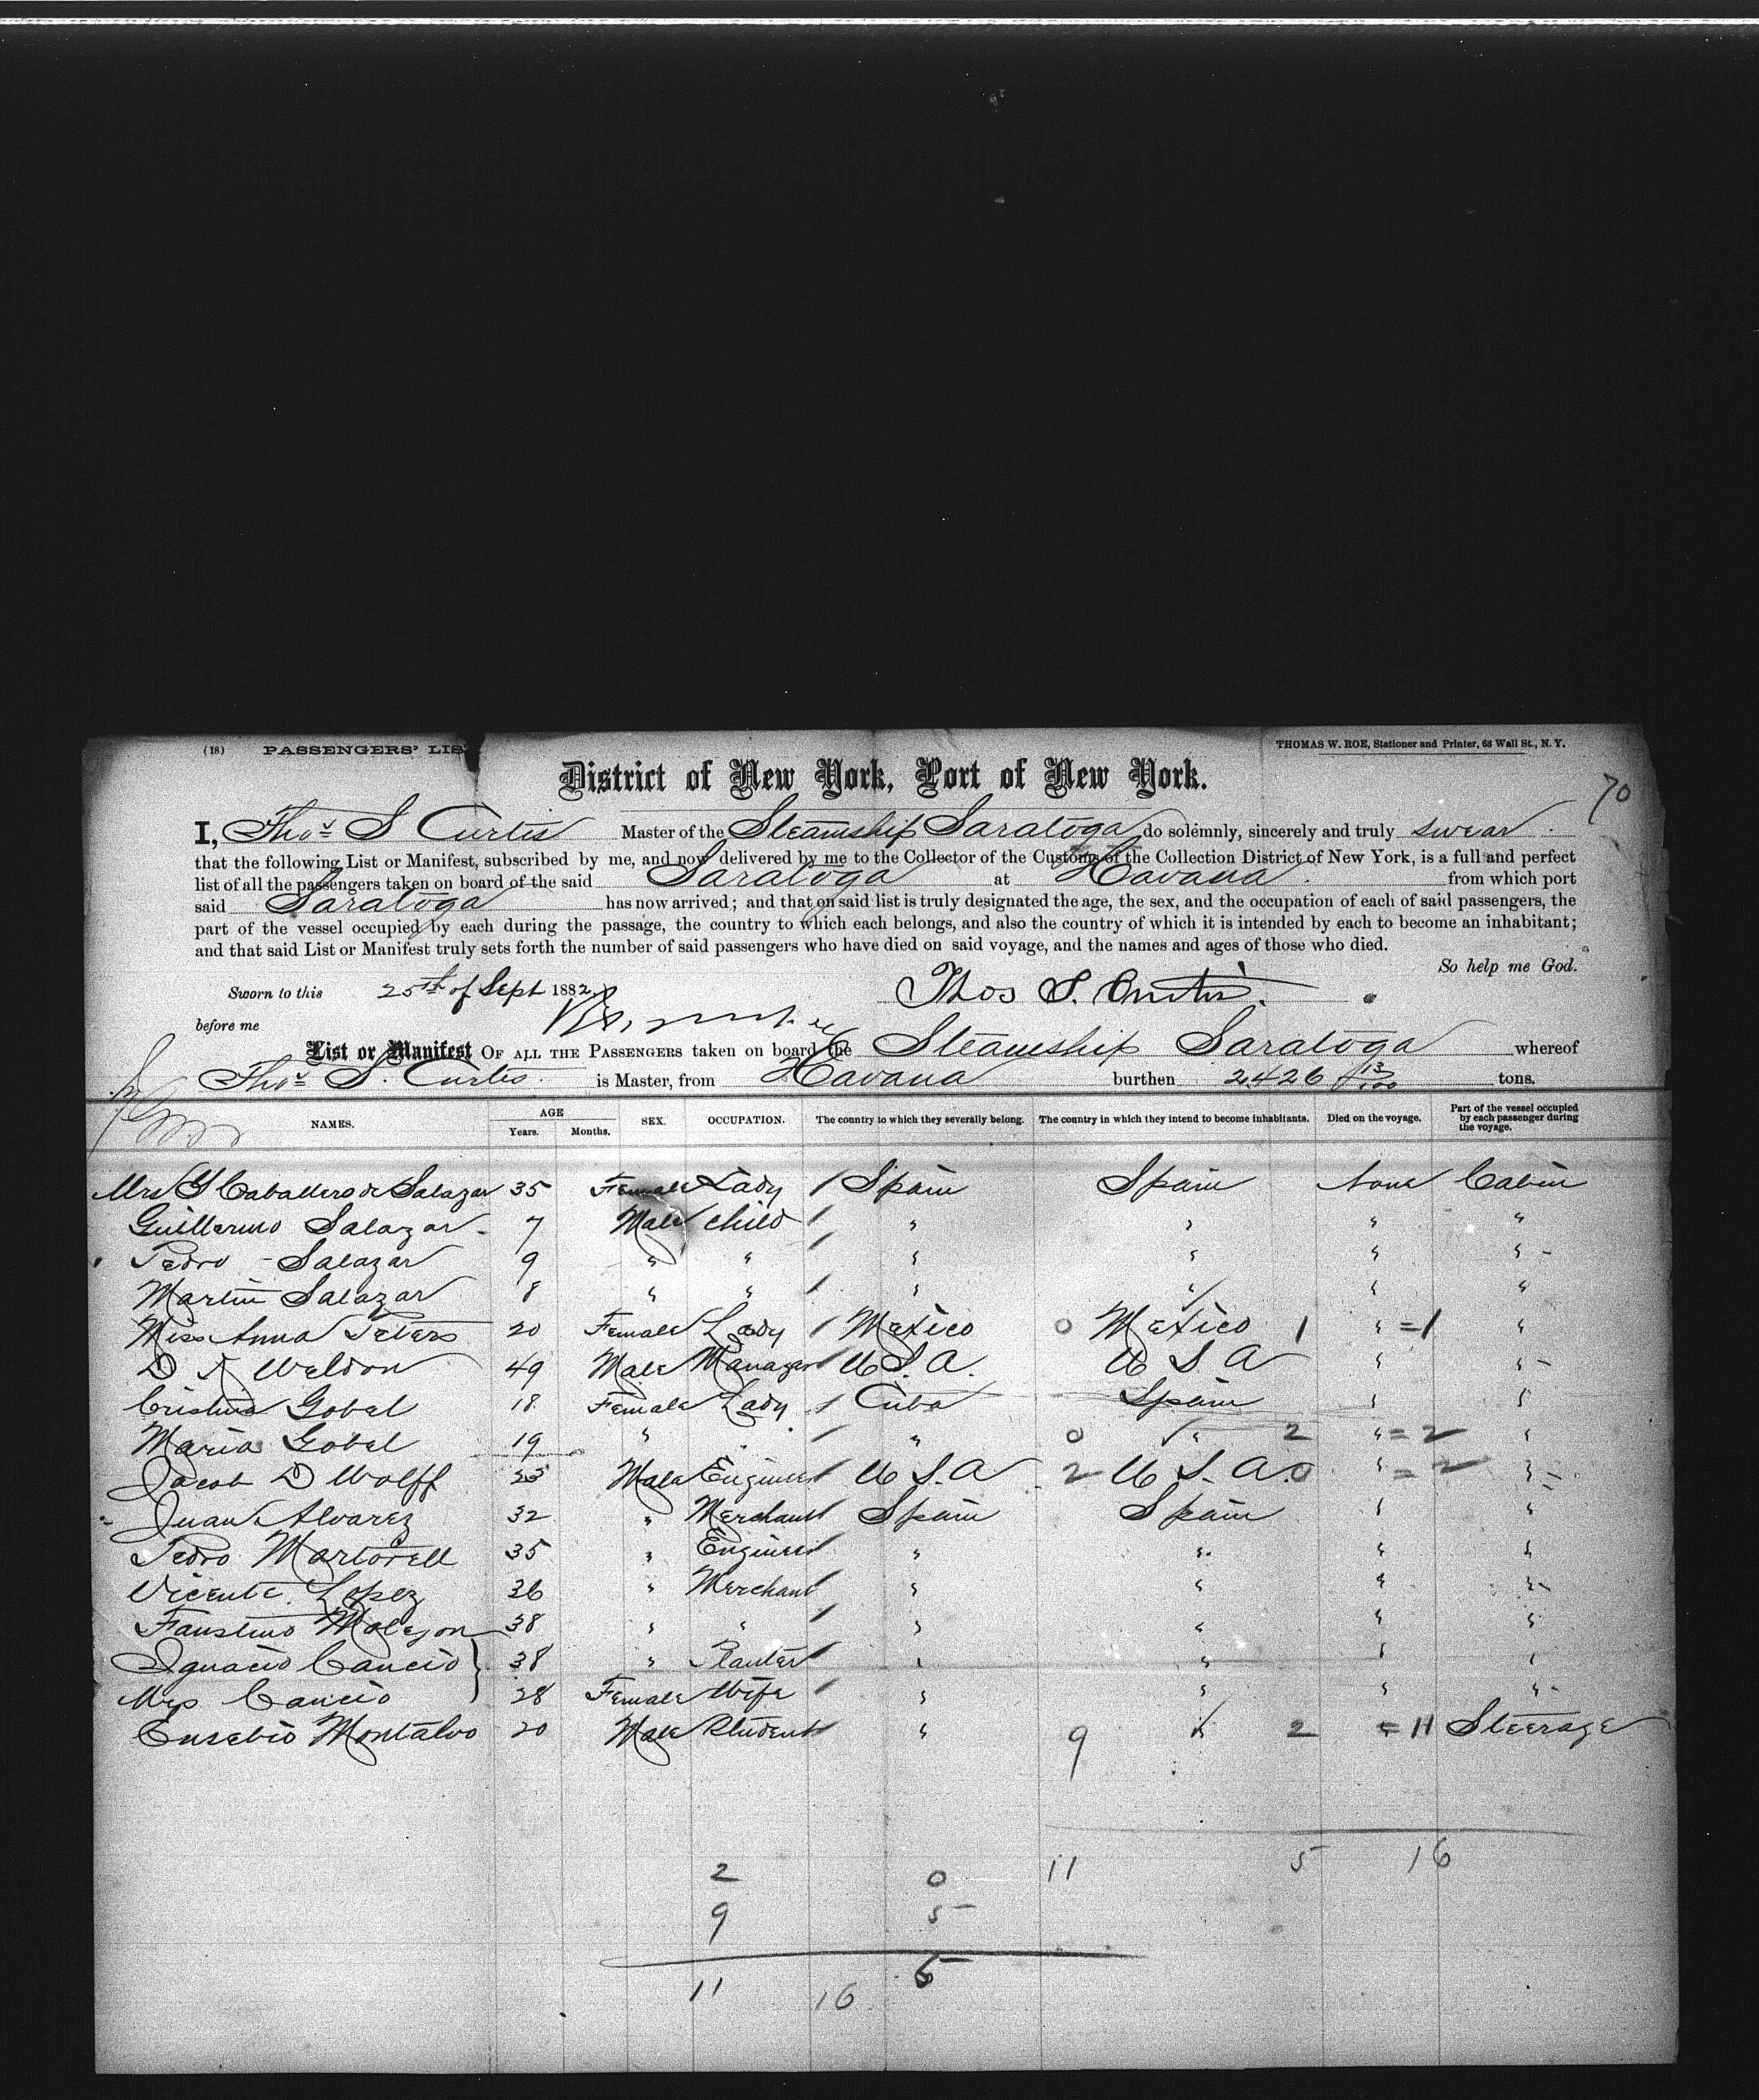 (18) PASSENGERS' LIST THOMAS W. ROE, Stationer and Printer, 63 Wall St., N.Y.
District of New York, Port of New York.
70
I, Thos S Curtis Master of the Steamship Saratoga do solemnly, sincerely and truly swear
that the following List or Manifest, subscribed by me, and now delivered by me to the Collector of the Customs of the Collection District of New York, is a full and perfect
list of all the passengers taken on board of the said Saratoga at Havana from which port
said Saratoga has now arrived; and that on said list is truly designated the age, the sex, and the occupation of each of said passengers, the
part of the vessel occupied by each during the passage, the country to which each belongs, and also the country of which it is intended by each to become an inhabitant;
and that said List or Manifest truly sets forth the number of said passengers who have died on said voyage, and the names and ages of those who died.
So help me God.
Sworn to this 25th of Sept 1882 Thos S. Curtis.
before me
List or Manifest OF ALL THE PASSENGERS taken on board the Steamship Saratoga whereof
Thos S. Curtis. is Master, from Havana burthen 2426 13/100 tons.
NAMES. AGE Years. Months. SEX. OCCUPATION. The country to which they severally belong. The country in which they intend to become inhabitants. Died on the voyage. Part of the vessel occupied by each passenger during the voyage.
Mrs Y Caballero de Salazar 35 Female Lady / Spain Spain None Cabin
Guillermo Salazar 7 Male Child / " " " "
Pedro Salazar 9 " " / " " " "
Martin Salazar 8 " " / " " " "
Miss Anna Peters 20 Female Lady / Mexico 0 Mexico 1 " =1 "
D A Weldon 49 Male Manager / U S A. U S A " "
Cristina Gobel 18 Female Lady / Cuba Spain " "
Maria Gobel 19 " " / " 0 " 2 " =2 "
Jacob D Wolff 25 Male Engineer / U S A 2 U S. A. 0 " =2 "
Juan Alvarez 32 " Merchant / Spain Spain " "
Pedro Martorell 35 " Engineer / " " " "
Vicente Lopez 36 " Merchant / " " " "
Faustino 38 " " / " " " "
Ignacio Cancio } 38 " Planter / " " " "
Mrs Cancio } 28 Female Wife / " " " "
Eusebio Montalvo 20 Male Student / " 9 " 2 " =11 Steerage
2 0 11 5 16
9 5
11 16 5